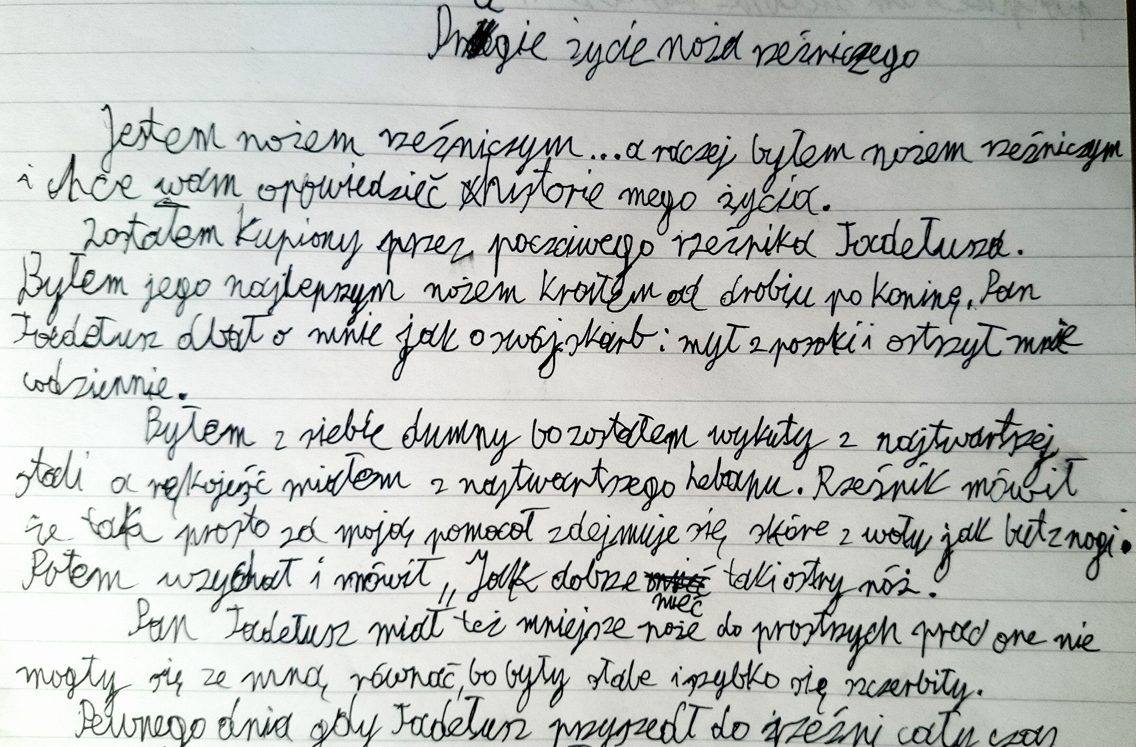 Drugie życie noża rzeźniczego
Jestem nożem rzeźniczym...a raczej byłem nożem rzeźniczym
i chce wam opowiedzieć historie mego życia.
Zostałem kupiony przez poczciwego rzeźnika Tadełusza.
Byłem jego najlepszym nożem kroiłem od drobiu po koninę. Pan
Tadełusz dbał o mnie jak o swój skarb: mył z posoki i ostrzył mnie
codziennie.
Byłem z siebie dumny bo zostałem wykuty z najtwartszej
stali a rękojeść miałem z najtwartszego hebanu. Rzeźnik mówił
że tak prosto za moją pomocoł zdejmuje się skóre z woły jak but z nogi.
Potem wzychał i mówił „Jak dobrze mieć taki ostry nóż.
Pan Tadełusz miał też mniejsze noże do prostrzych prac one nie
mogły się ze mną równać, bo były słabe i szybko się szczerbiły.
Pewnego dnia gdy Tadełusz przyszedł do rzeźni cały czas